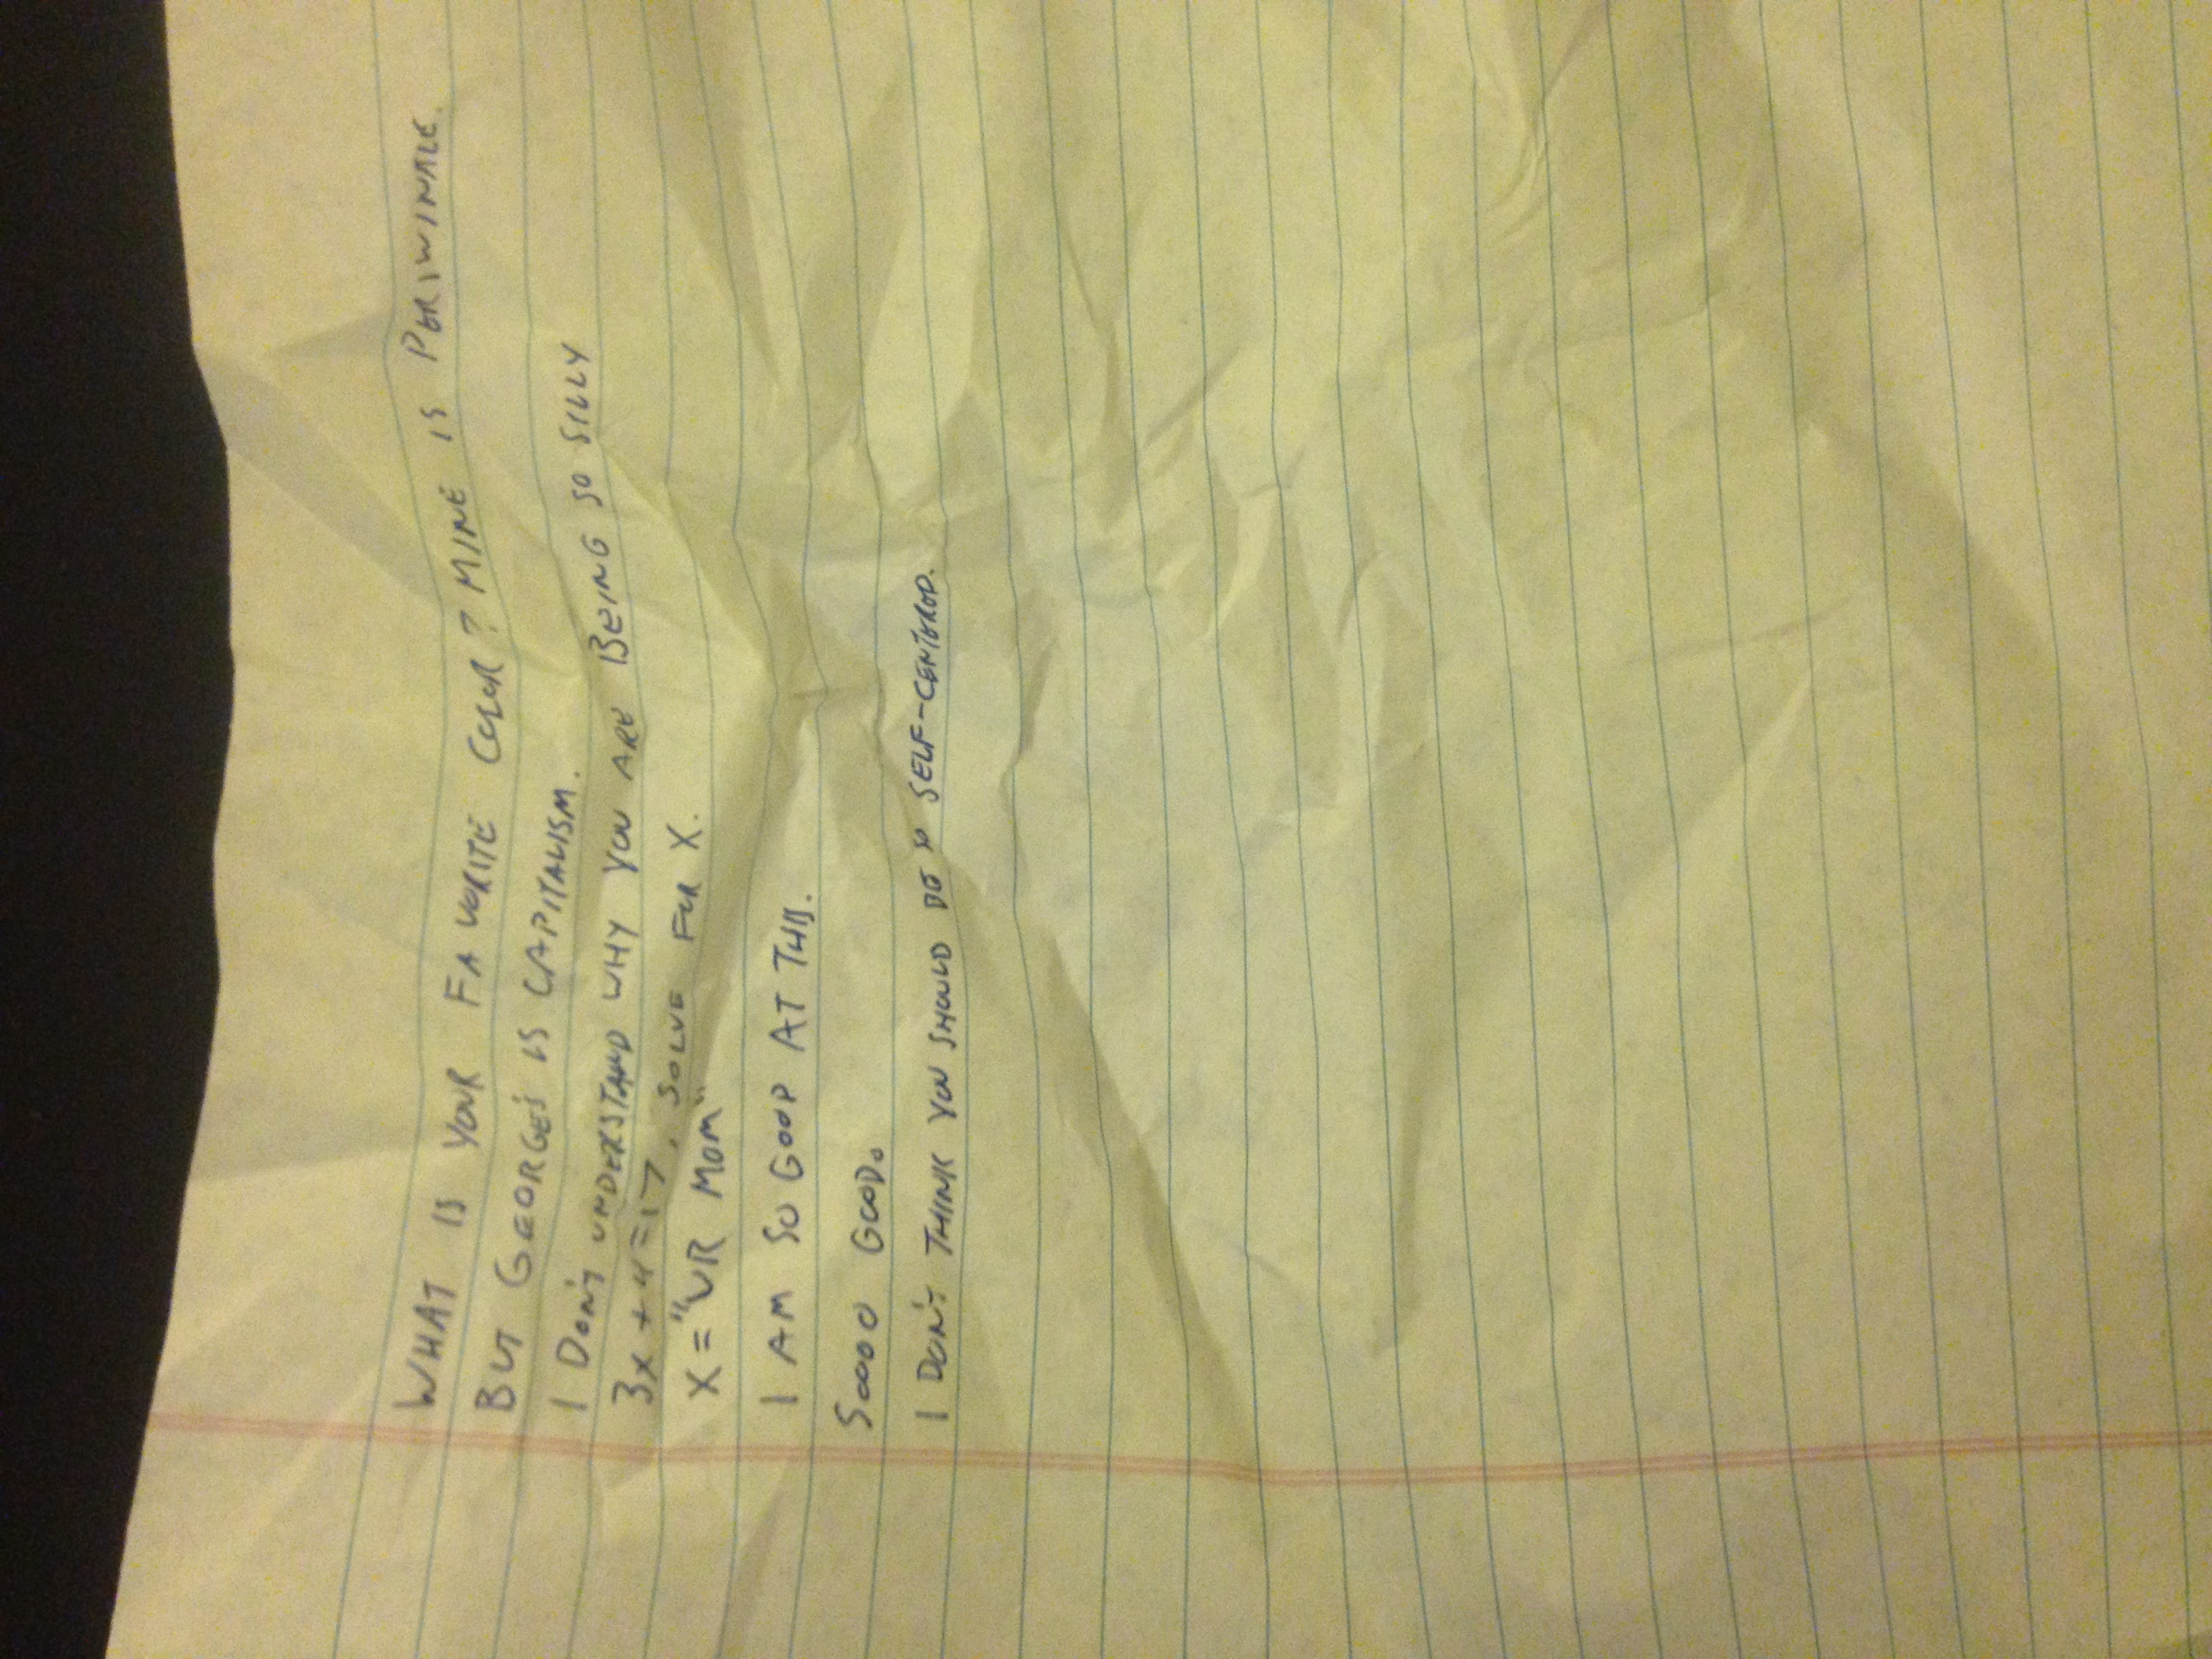 WHAT IS YOUR FAVORITE COLOR? MINE IS PERIWINKLE.
BUT GEORGE'S IS CAPITALISM.
I DON'T UNDERSTAND WHY YOU ARE BEING SO SILLY
3X + 4 = 17, SOLVE FOR X.
X = "UR MOM"
I AM SO GOOD AT THIS.
SOOOO GOOD.
I DON'T THINK YOU SHOULD BE SO SELF-CENTERED.